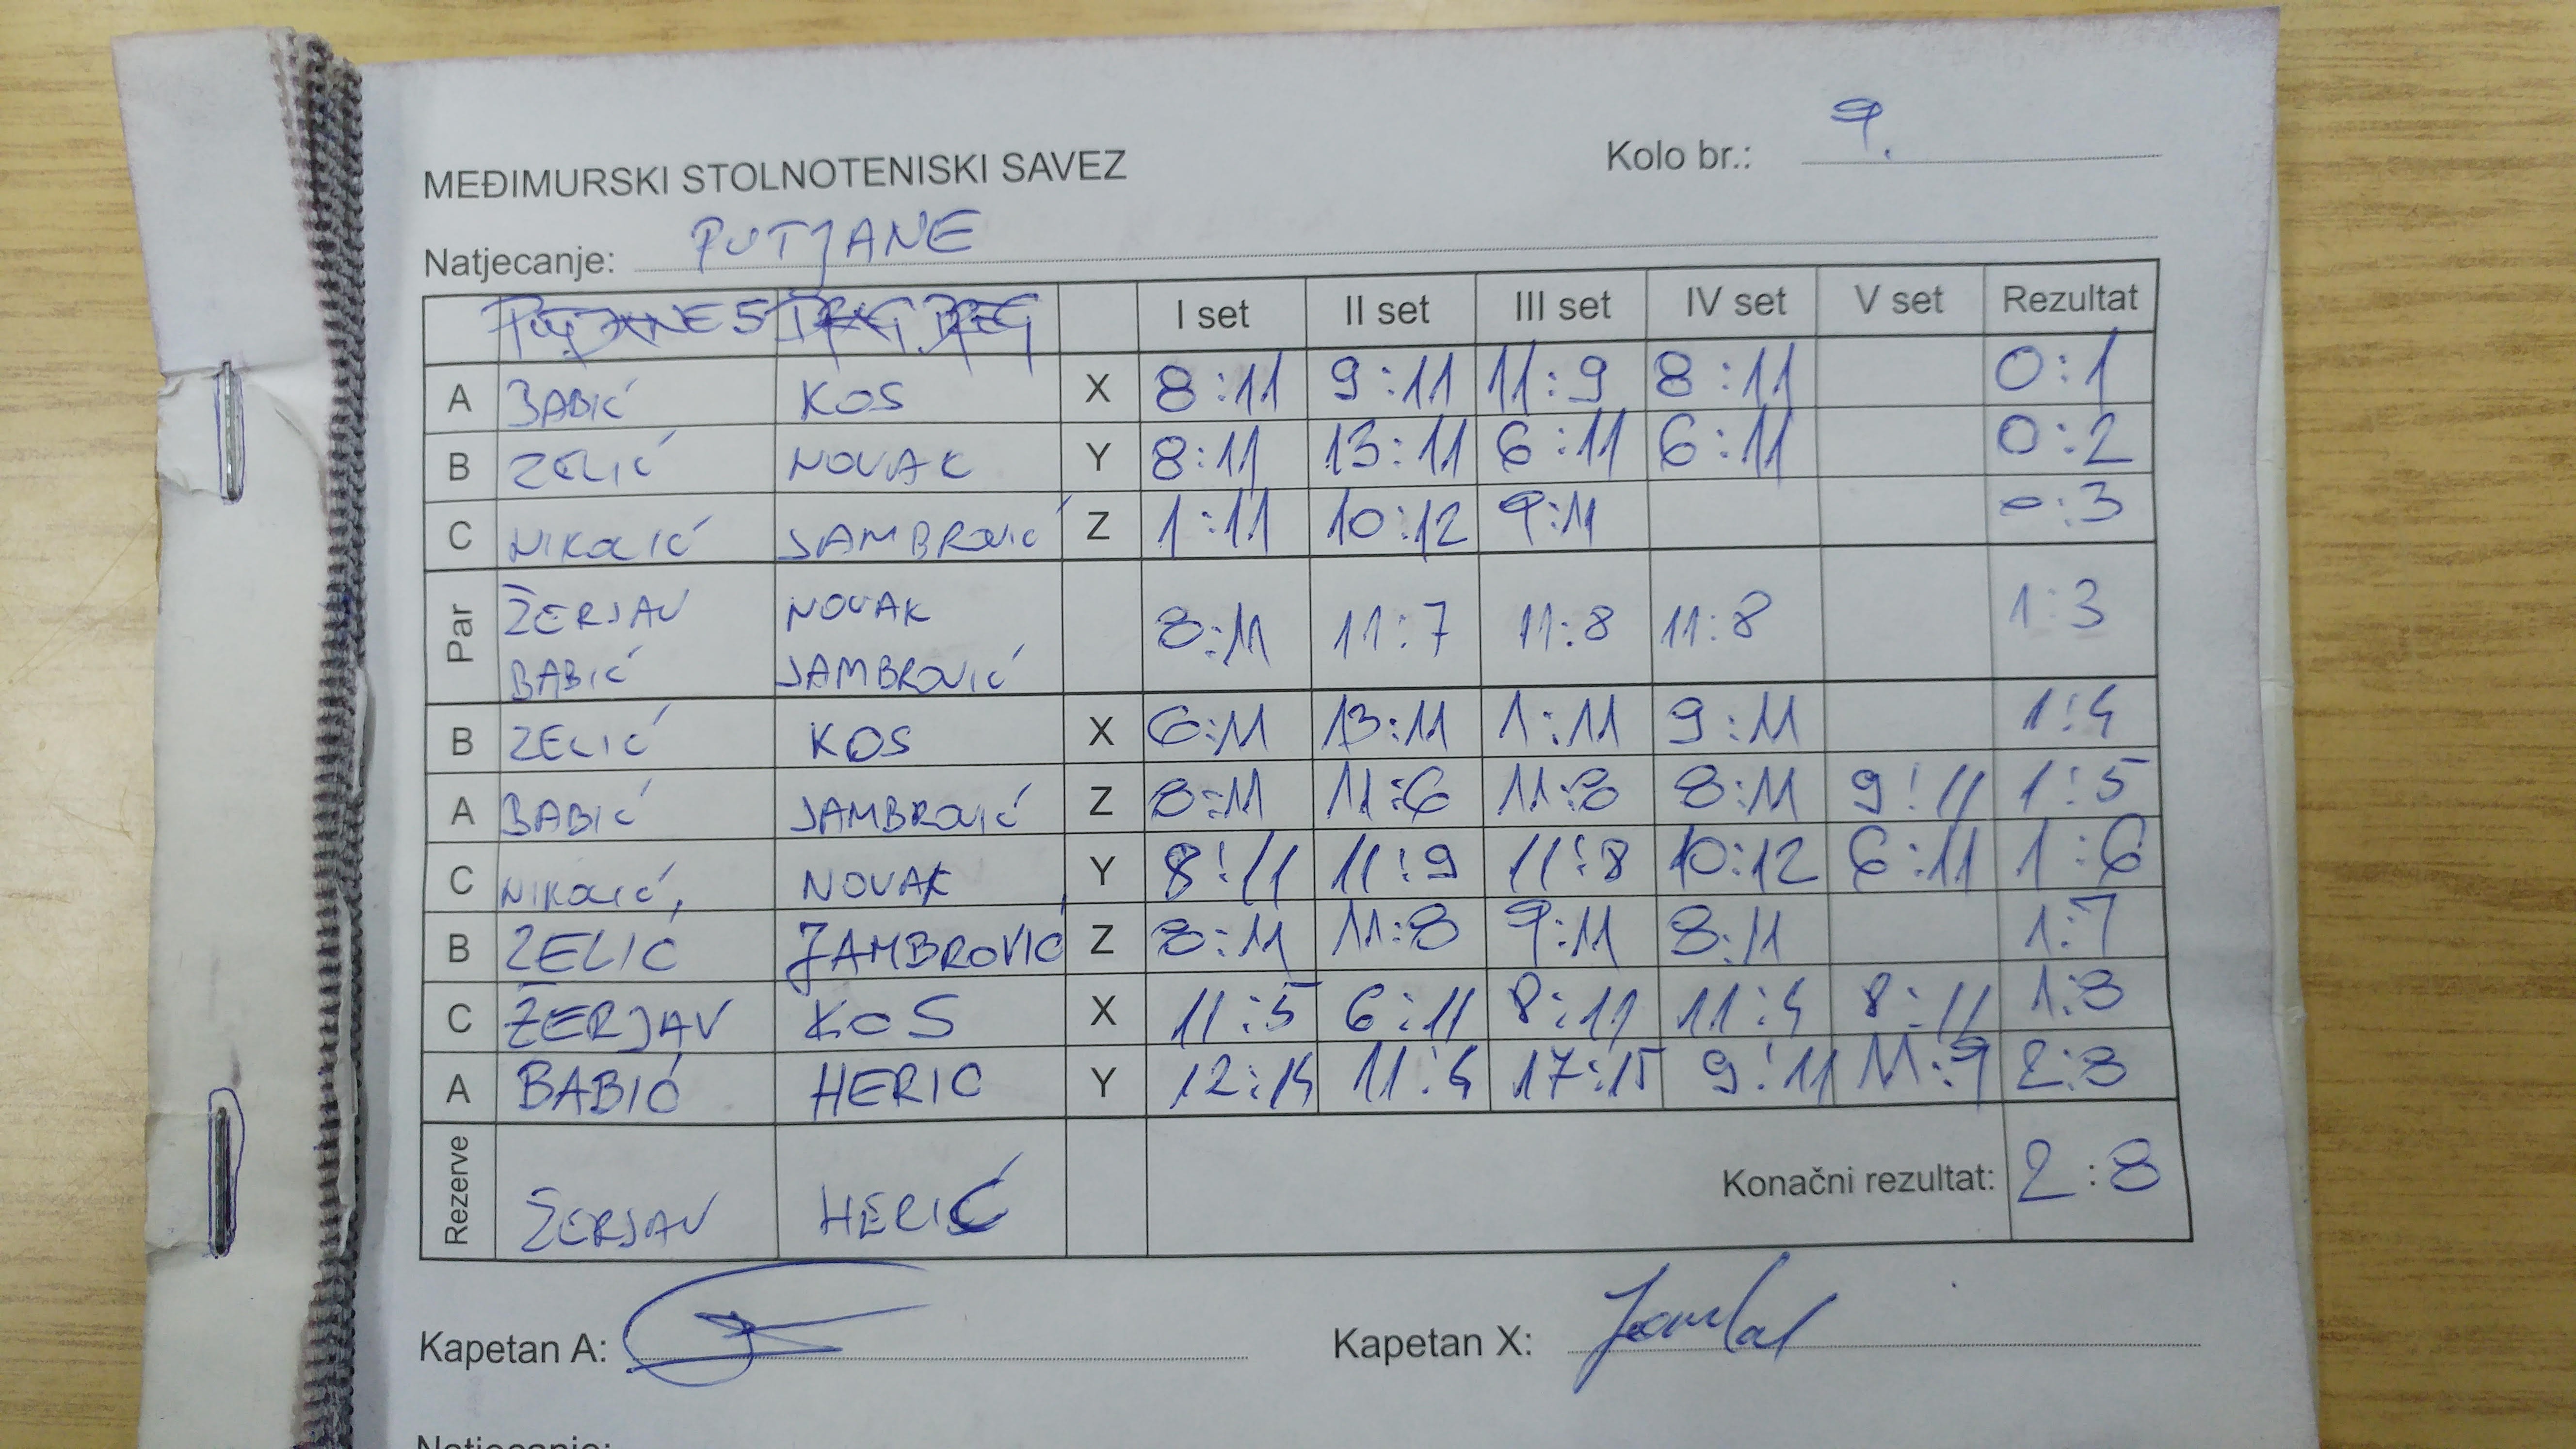 MEĐIMURSKI STOLNOTENISKI SAVEZ
Kolo br.: 9.
Natjecanje: PUTJANE
I set II set III set IV set V set Rezultat
A BABIĆ KOS X 8:11 9:11 11:9 8:11 0:1
B ZELIĆ NOVAK Y 8:11 13:11 6:11 6:11 0:2
C NIKOLIĆ JAMBROVIĆ Z 1:11 10:12 9:11 0:3
Par ŽERJAV NOVAK 8:11 11:7 11:8 11:8 1:3
BABIĆ JAMBROVIĆ
B ZELIĆ KOS X 6:11 13:11 1:11 9:11 1:4
A BABIĆ JAMBROVIĆ Z 8:11 11:6 11:8 8:11 9:11 1:5
C NIKOLIĆ, NOVAK Y 8:11 11:9 11:8 10:12 6:11 1:6
B ZELIĆ JAMBROVIĆ Z 8:11 11:8 9:11 8:11 1:7
C ŽERJAV KOS X 11:5 6:11 8:11 11:4 8:11 1:8
A BABIĆ HERIC Y 12:14 11:4 17:15 9:11 11:9 2:8
Rezerve ŽERJAV HERIĆ Konačni rezultat: 2:8
Kapetan A:
Kapetan X:
Natjecanje: